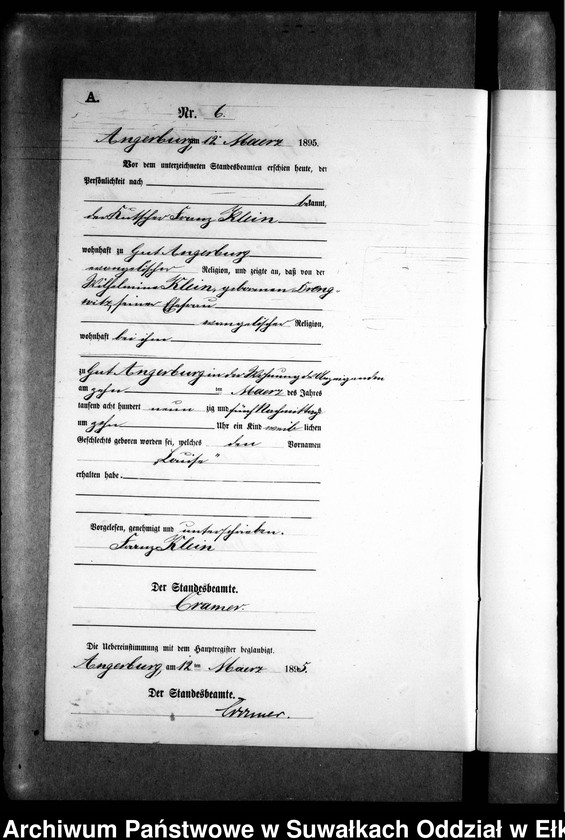 A.
Nr. 6.
Angerburg, am 12ten Maerz 1895.
Vor dem unterzeichneten Standesbeamten erschien heute, der
Persönlichkeit nach
bekannt,
der Kutscher Franz Klein
wohnhaft zu Gut Angerburg
evangelischer Religion, und zeigte an, daß von der
Wilhelmine Klein, geborenen Drong-
witz, seiner Ehefrau
evangelischer Religion,
wohnhaft bei ihm
zu Gut Angerburg in der Wohnung des Anzeigenden
am zehn ten Maerz des Jahres
tausend acht hundert neun zig und fünf Nachmittags
um zehn Uhr ein Kind weib lichen
Geschlechts geboren worden sei, welches den Vornamen
„Louise“
erhalten habe.
Vorgelesen, genehmigt und unterschrieben.
Franz Klein
Der Standesbeamte.
Cramer.
Die Uebereinstimmung mit dem Hauptregister beglaubigt.
Angerburg, am 12ten Maerz 1895.
Der Standesbeamte.
Cramer.
Archiwum Państwowe w Suwałkach Oddział w Ełk